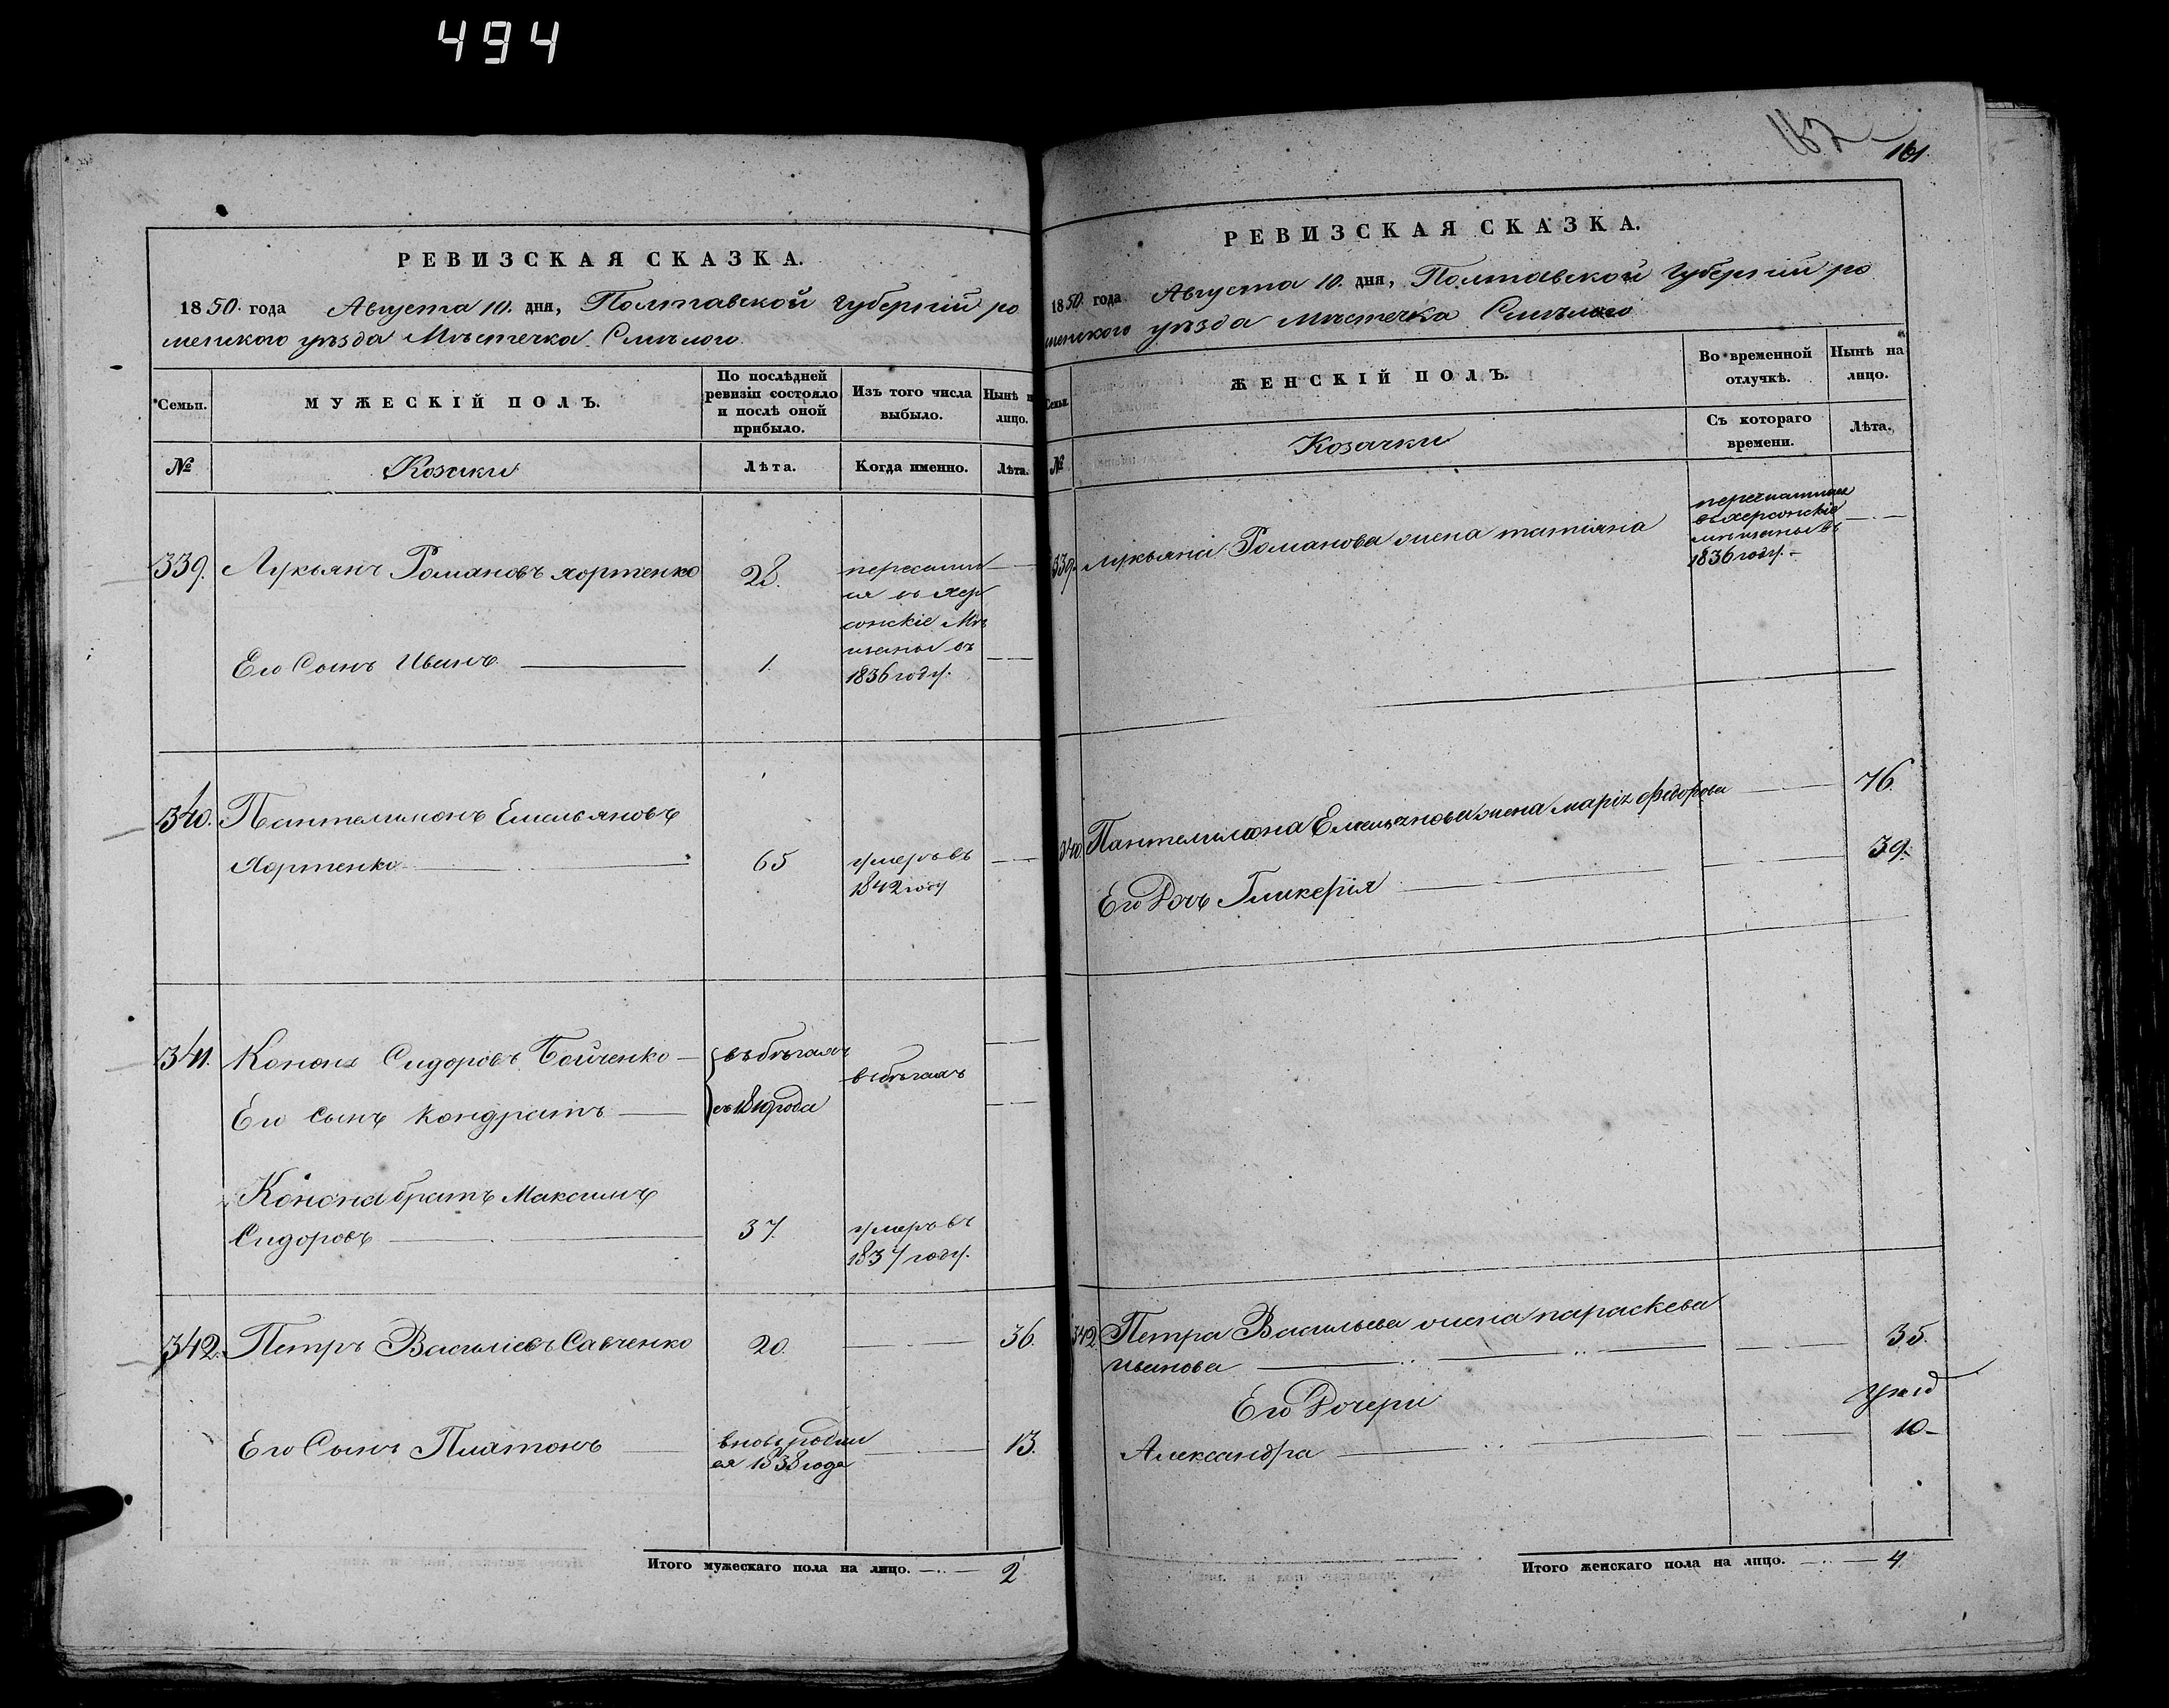 494
РЕВИЗСКАЯ СКАЗКА.
1850. года Августа 10. дня, Полтавской Губернiи ро
менскаго уѣзда Мѣстечка Смѣлого
Семьи. МУЖЕСКІЙ ПОЛЪ. По послѣдней ревизіи состояло и послѣ оной прибыло. Изъ того числа выбыло. Нынѣ н лицо.
№ Козаки Лѣта. Когда именно. Лѣта.
339. Лукьянъ Романовъ хортенко 28.
ся въ Хер
сонскіе Мѣ
щаны въ
Его Сынъ Иванъ 1. 1836 году.
340. Пантелимонъ Емельяновъ
Хортенко 65 умеръ въ
1842 году
341. Кононъ Сидоровъ Бойченко въ бѣгахъ въ бѣгахъ
Его сынъ Кондратъ съ 1819 года
Конона братъ Максимъ
Сидоровъ 37. умеръ въ
1837 году.
342. Петръ Василіевъ Савченко 20. 36.
Его Сынъ Платонъ вновь родил 13.
ся 1838 года
Итого мужескаго пола на лицо. 2
162
161.
РЕВИЗСКАЯ СКАЗКА.
1850. года Августа 10. дня, Полтавской Губернiи ро
менского уѣзда Мѣстечка Смѣлого
Семьи. ЖЕНСКІЙ ПОЛЪ. Во временной отлучкѣ. Нынѣ на лицо.
Съ котораго времени. Лѣта.
№ Козачки
339. Лукьяна Романова жена татіяна
въ херсонскіе
мѣщаны въ
1836 году.
340. Пантелимона Емельянова жена марія федорова 76.
Его Дочь Гликерія 39.
342. Петра Васильева жена параскева
иванова 35.
Его Дочери
Александра 10
Итого женскаго пола на лицо. 4.